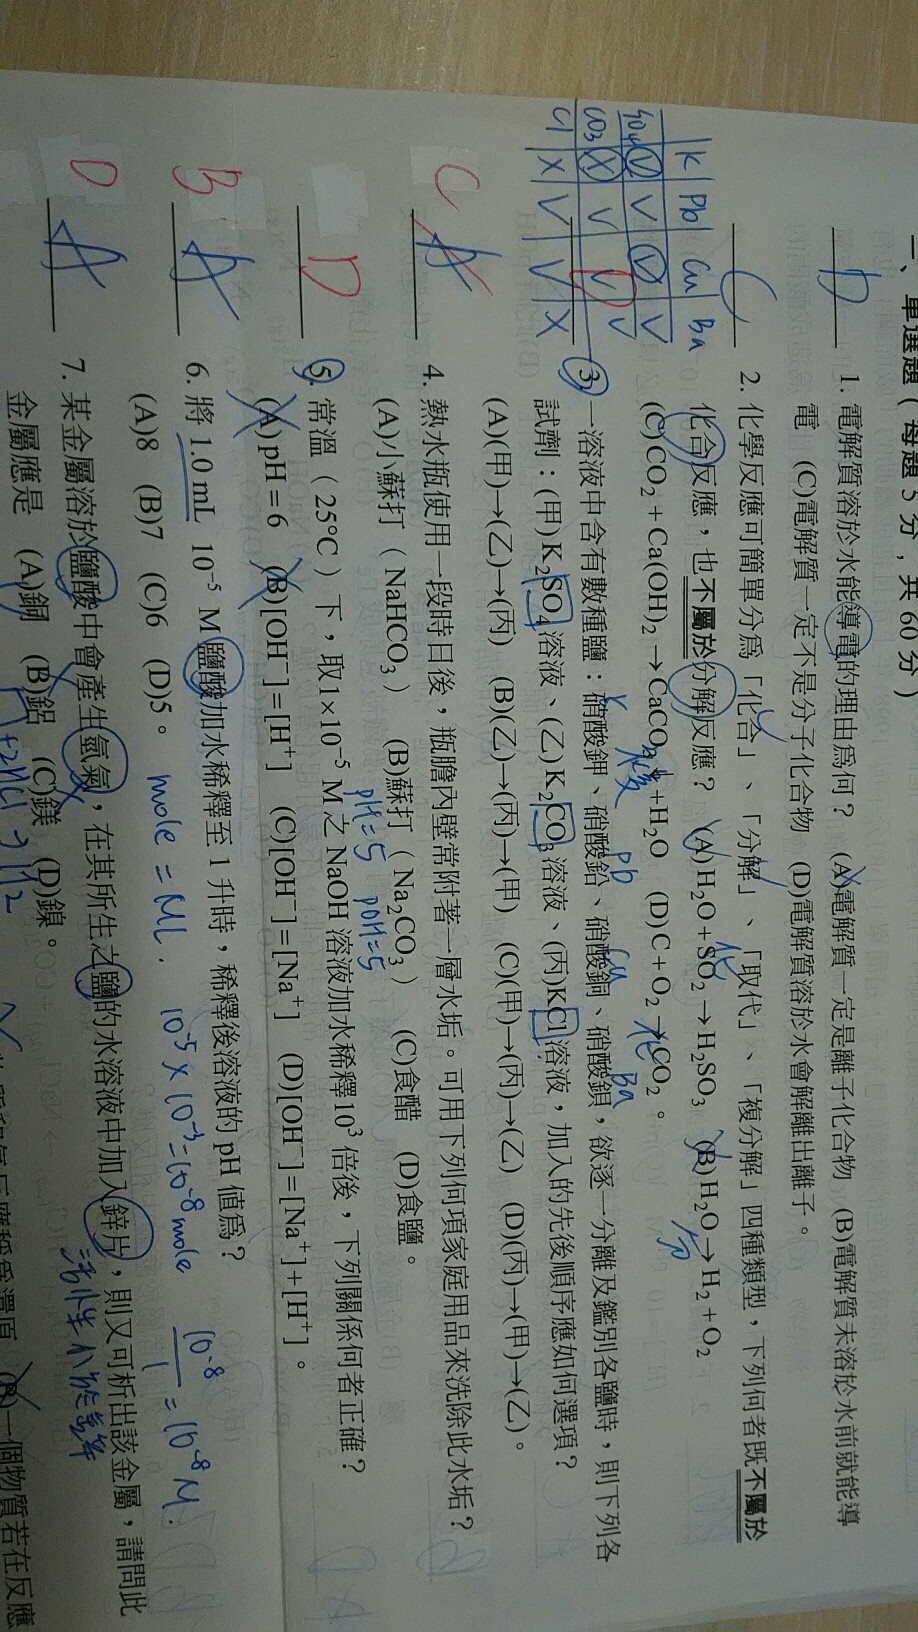 一、單選題(每題5分,共60分)
D 1. 電解質溶於水能導電的理由為何? (A)電解質一定是離子化合物 (B)電解質未溶於水前就能導
電 (C)電解質一定不是分子化合物 (D)電解質溶於水會解離出離子。
C 2. 化學反應可簡單分為「化合」、「分解」、「取代」、「複分解」四種類型,下列何者既不屬於
化合反應,也不屬於分解反應? (A)H₂O+SO₂→H₂SO₃ (B)H₂O→H₂+O₂
化
分
(C)CO₂+Ca(OH)₂→CaCO₃↓+H₂O (D)C+O₂→CO₂。
複
化
K Pb Cu Ba
SO₄ V V V V
CO₃ X V V V
Cl X V V X
K Pb Cu Ba
D 3. 一溶液中含有數種鹽:硝酸鉀、硝酸鉛、硝酸銅、硝酸鋇,欲逐一分離及鑑別各鹽時,則下列各
試劑:(甲)K₂SO₄溶液、(乙)K₂CO₃溶液、(丙)KCl溶液,加入的先後順序應如何選項?
(A)(甲)→(乙)→(丙) (B)(乙)→(丙)→(甲) (C)(甲)→(丙)→(乙) (D)(丙)→(甲)→(乙)。
C A 4. 熱水瓶使用一段時日後,瓶膽內壁常附著一層水垢。可用下列何項家庭用品來洗除此水垢?
(A)小蘇打(NaHCO₃) (B)蘇打(Na₂CO₃) (C)食醋 (D)食鹽。
pH=5 pOH=5
D 5. 常溫(25°C)下,取1×10⁻⁵ M之NaOH溶液加水稀釋10³倍後,下列關係何者正確?
(A)pH=6 (B)[OH⁻]=[H⁺] (C)[OH⁻]=[Na⁺] (D)[OH⁻]=[Na⁺]+[H⁺]。
B A 6. 將1.0 mL 10⁻⁵ M鹽酸加水稀釋至1升時,稀釋後溶液的pH值為?
(A)8 (B)7 (C)6 (D)5。
mole = ML. 10⁻⁵×10⁻³=10⁻⁸mole 10⁻⁸/1=10⁻⁸M.
D A 7. 某金屬溶於鹽酸中會產生氫氣,在其所生之鹽的水溶液中加入鋅片,則又可析出該金屬,請問此
金屬應是 (A)銅 (B)鋁 (C)鎂 (D)鎳。
+2HCl→H₂
活性小於鋅
(B)一個物質若在反應